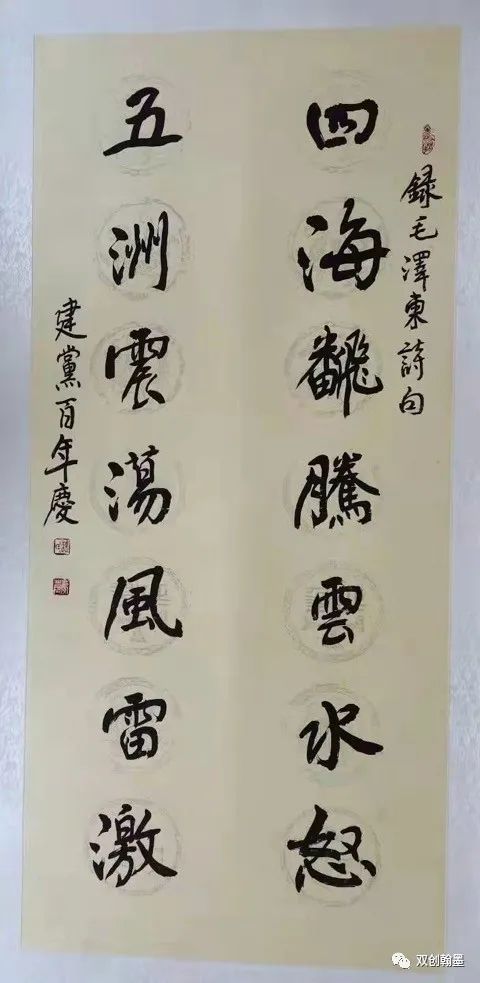 録毛澤東詩句
四海飜騰雲水怒
五洲震蕩風雷激
建黨百年慶
双创翰墨